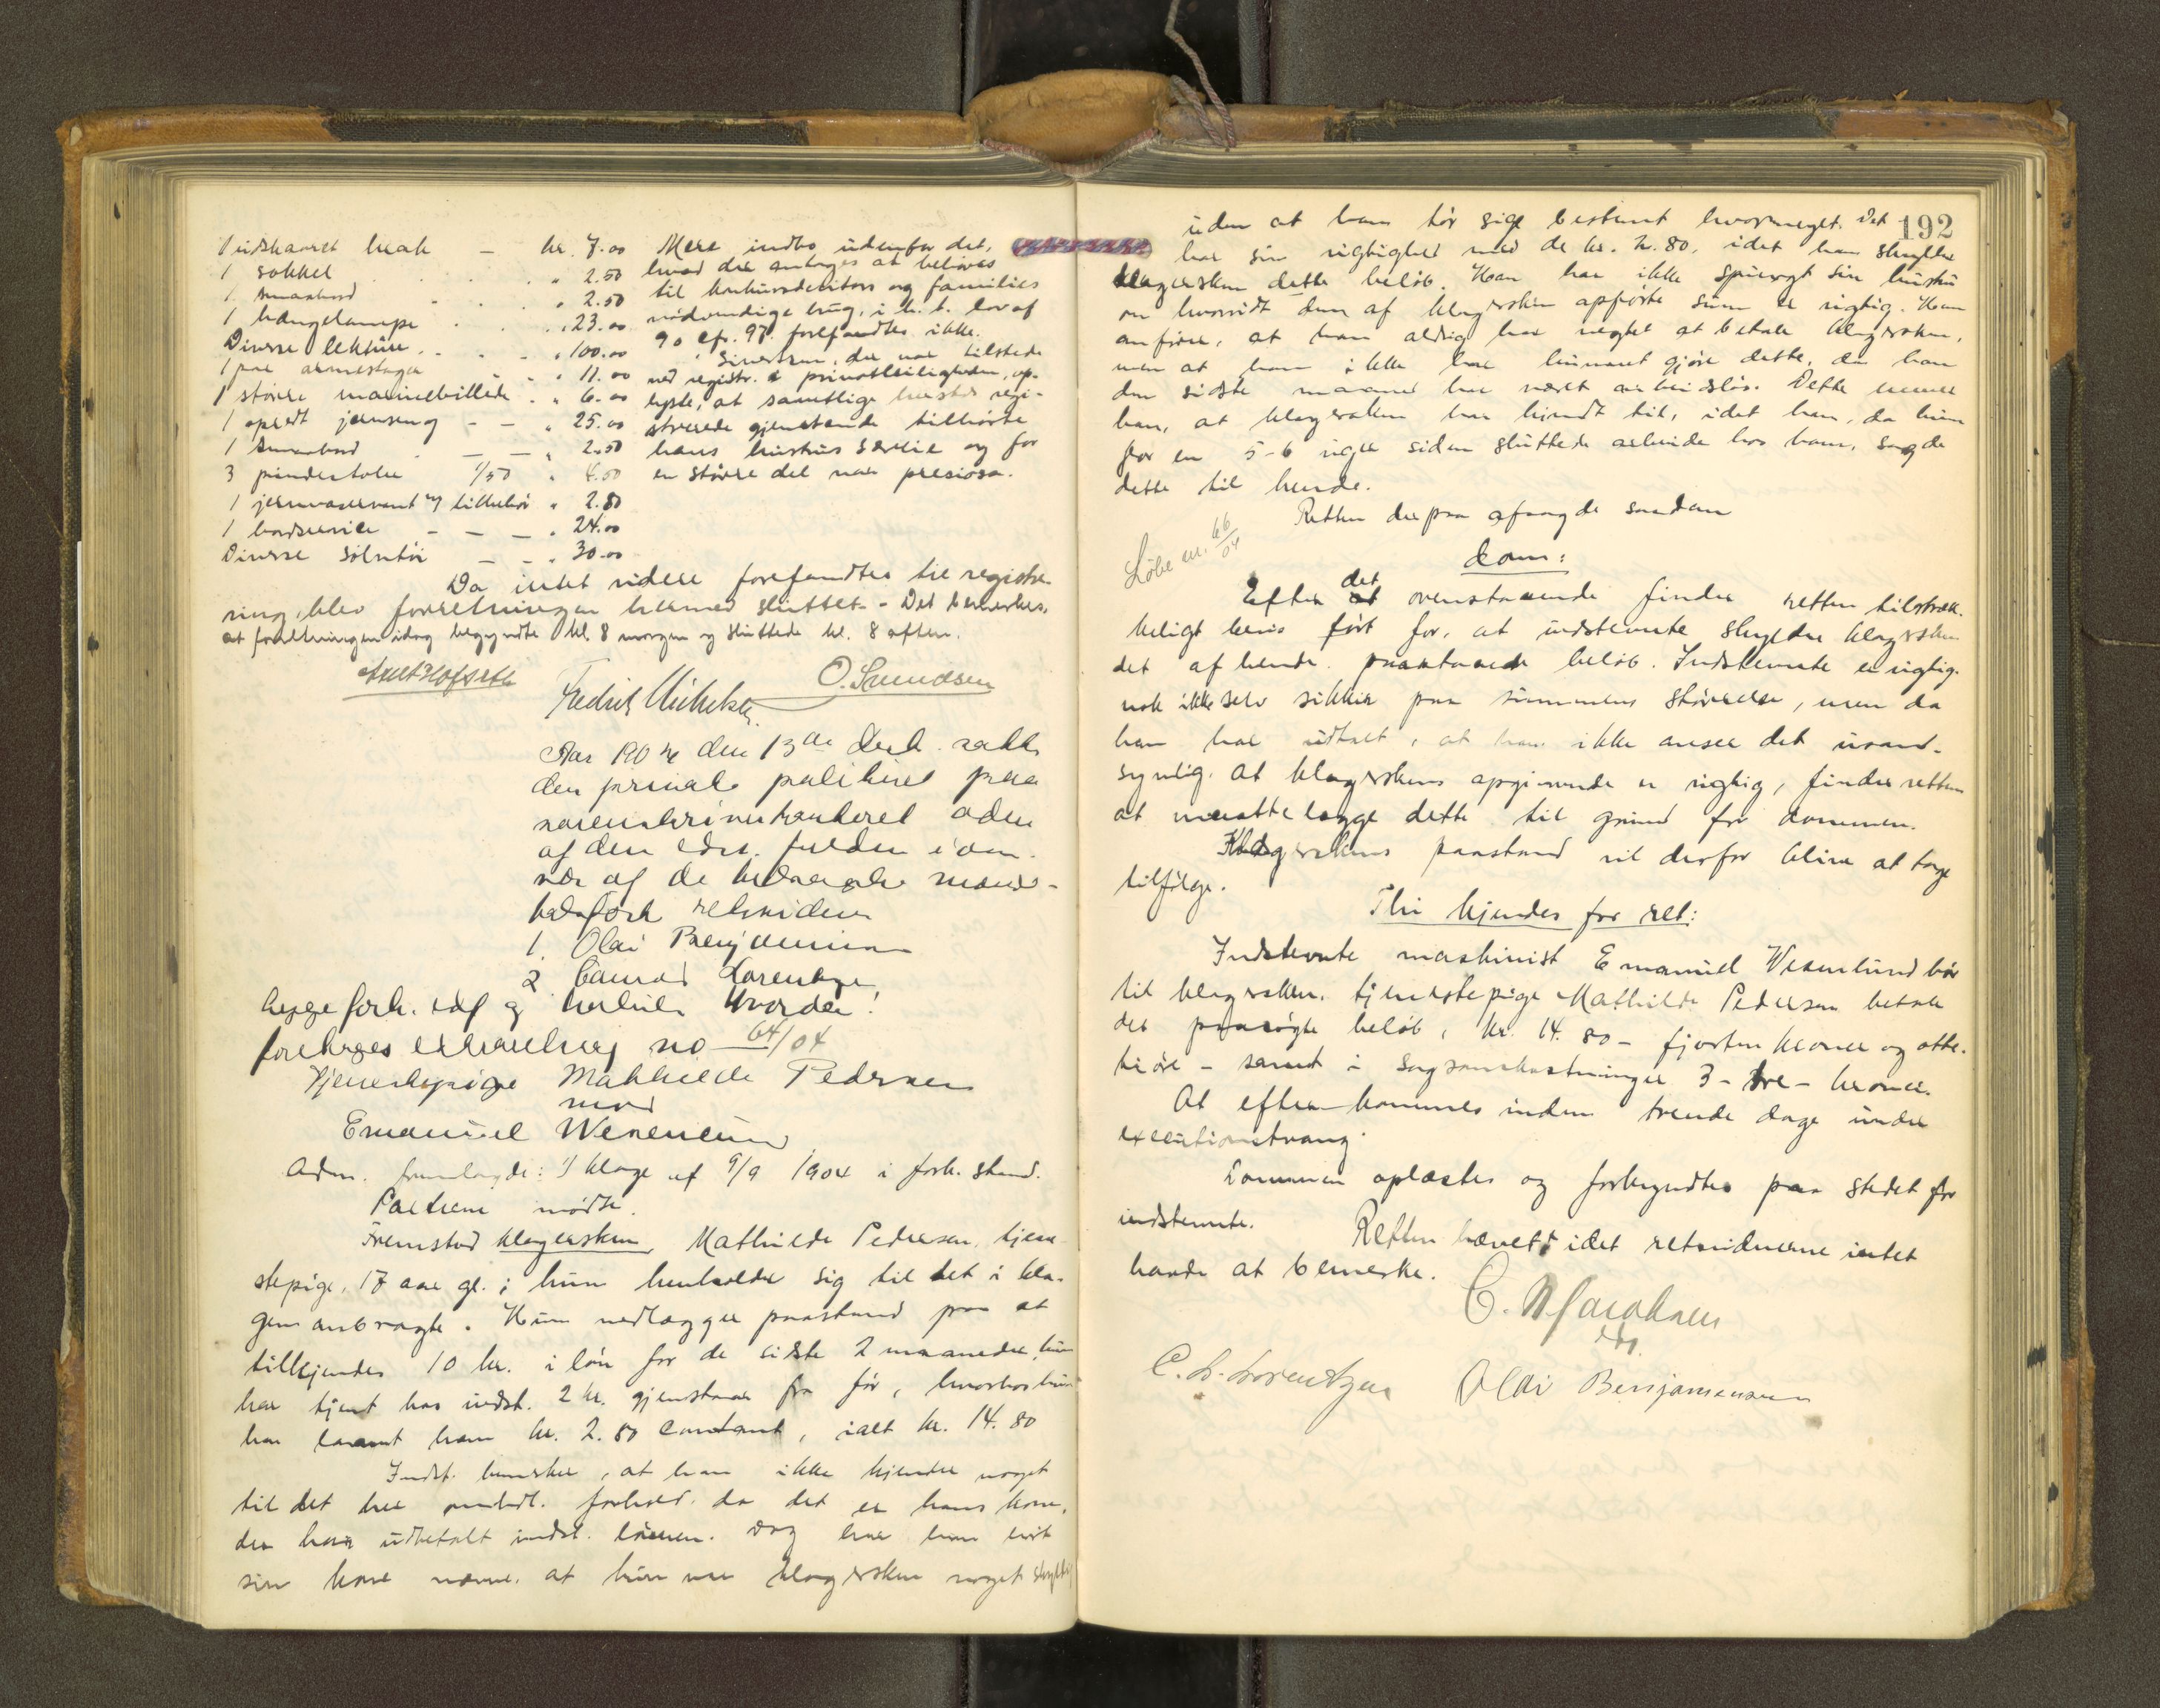 1 udskaaret hrak — kr. 7.00
1 sokkel . . . " 2.50
1 smaabord . . " 2.50
1 hængelampe . . " 23.00
Diverse lektüre . . . " 100.00
1 par armestager . . " 11.00
1 større marinebillede . " 6.00
1 opredt jernseng - - " 25.00
1 smaabord - - " 2.50
3 pindestole 1/50 " 4.50
1 jernvaservant m/ tilbehør " 2.80
1 bordservice - - - " 24.00
Diverse sølvtøi - - " 30.00
Mere indbo udenfor det,
hvad der antages at behøves
til konkursdebitors og families
nødvendige brug, i h. t. lov af
90 cfr. 97. forefandtes ikke.
Sivertsen, der var tilstede
ved registr. i privatleiligheden, op-
lyste, at samtlige regi-
strerede gjenstande tilhørte
hans hustrus særeie og for
en større del var preciosa.
Da intet videre forefandtes til registre-
ring, blev forretningen hermed sluttet. - Det bemerkes,
at forretningen idag begyndte kl. 8 morgen og sluttede kl. 8 aften.
Fredrik Michelsen
O. Svendsen
Aar 1904 den 13de decb. satte
den private politiret paa
sorenskriverkontoret aden
af den edsv. fuldm. i over-
vær af de
retsvidner
1. Olai Benjaminsen
2 Conrad Lorentzen
begge forh. edf og Hvorda!
foretages extraretssag no 64/04
Tjenestepige Mathilde Pedersen
mod
Emanuel Wesenlund
Adm. fremlagde: 1) klage af 9/9 1904 i forh. stand.
Parterne mødte.
Fremstod klagersken, Mathilde Pedersen, tjene-
stepige, 17 aar gl.; hun henholder sig til det i kla-
gen anbragte. Hun nedlægger paastand paa at
tilkjendes 10 kr. i løn for de sidste 2 maaneder, hun
har tjent hos indst. 2 kr. gjenstaar fra før, hvorhos hun
har laant ham kr. 2.80 contant, ialt kr. 14.80
Indst. bemerker, at han ikke kjender noget
til det her omhdl. forhold, da det er hans kone,
der har udbetalt indst. lønnen. Dog har han hørt
sin kone nævne, at hun var klagersken noget skyldig
192
uden at han tør sige bestemt hvormeget. Det
har sin rigtighed med de kr. 2.80, idet han skylder
klagersken dette beløb. Han har ikke spurgt sin hustru
om hvorvidt den af klagersken opførte sum er rigtig. Han
anfører, at han aldrig har negtet at betale klagersken,
men at han ikke har kunnet gjøre dette, da han
den sidste maaned har været arbeidsløs. Dette mener
han, at klagersken har kjendt til, idet han, da hun
for en 5-6 uger siden sluttede arbeide hos ham, sagde
dette til hende.
Retten derpaa afsagde saadan
Løbe nr. 66/04
Dom:
Efter det ovenstaaende finder retten tilstræk-
keligt bevis ført for, at indstevnte skylder klagersken
det af hende paastaaede beløb. Indstevnte er rigtig-
nok ikke selv sikker paa summens størrelse, men da
han har udtalt, at han ikke anser det usand-
synlig, at klagerskens opgivende er rigtig, finder retten
at maatte lægge dette til grund for dommen.
Klagerskens paastand vil derfor blive at tage
tilfølge.
Thi kjendes for ret:
Indstevnte maskinist Emanuel Wesenlund bør
til klagersken, tjenestepige Mathilde Pedersen betale
det paasøgte beløb, kr. 14.80 - fjorten kroner og otte-
ti øre - samt i sagsomkostninger 3 - tre - kroner.
At efterkommes inden trende dage under
executionstvang.
Dommen oplæstes og forkyndtes paa stedet for
indstevnte.
Retten hævet, idet retsvidnerne intet
havde at bemerke.
C. M Jacobsen
C. L. Lorentzen Olai Benjamensen